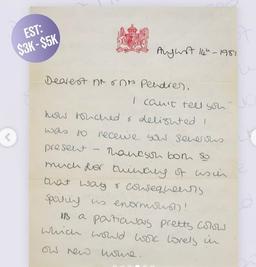 EST:
$3K - $5K
August 14th - 1981
Dearest Mr & Mrs Pendren,
I can't tell you
how touched & delighted I
was to receive your generous
present - Thankyou both so
much for thinking of us in
that way & consequently
spoiling us enormously!
Its a particularly pretty colour
which would look lovely in
our new home.